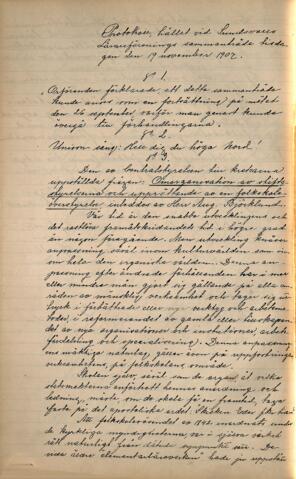 Protokoll, hållet vid Sundsvalls
Lärareförenings sammanträde tisda-
gen den 19 november 1907.
§ 1.
Ordföranden förklarade att detta sammanträde
kunde anses som en fortsättning på mötet
den 26 september, varför man genast kunde
övergå till förhandlingarna.
§ 2.
Unison sång: Hell dig du höga Nord!
§ 3.
Den av Centralstyrelsen till kretsarna
uppställda frågan: Omorganisation av stifts-
styrelserna och upprättande av en folkskole-
överstyrelse inleddes av Herr Aug. Björklund.
Vår tid är den snabba utvecklingens och
det rastlösa framåtskridandets tid i högre grad
än någon föregående. Men utveckling kräver
anpassning såväl inom kulturvärlden som in-
om hela den organiska världen. Denna an-
passning efter ändrade förhållanden har i mer
eller mindre mån gjort sig gällande på alla om-
råden av mänsklig verksamhet och tager sig ut-
tryck i författade eller nya verktyg och arbetsme-
toder, i reformerandet av gamla eller skapan-
det av nya organisationer och institutioner, arbets-
fördelning och specialisering. Denna anpassning-
ens mäktiga naturlag, gäller även på uppfostrings-
verksamhetens, på folkskolans område.
Skolan själv, såväl som de organ åt vilka
statsmakterna anförtrott hennes anordning och
ledning, måste, om de skola få en framtid, taga
fasta på det apostoliska ordet. Skicken Eder efter
Att folkskoleväsendet av 1842 inordnats under
de kyrkliga myndigheterna, var i själva verket
rätt naturligt från dåtida synpunkt sett. De-
nna även "elementarläroverken" hade ju uppstått